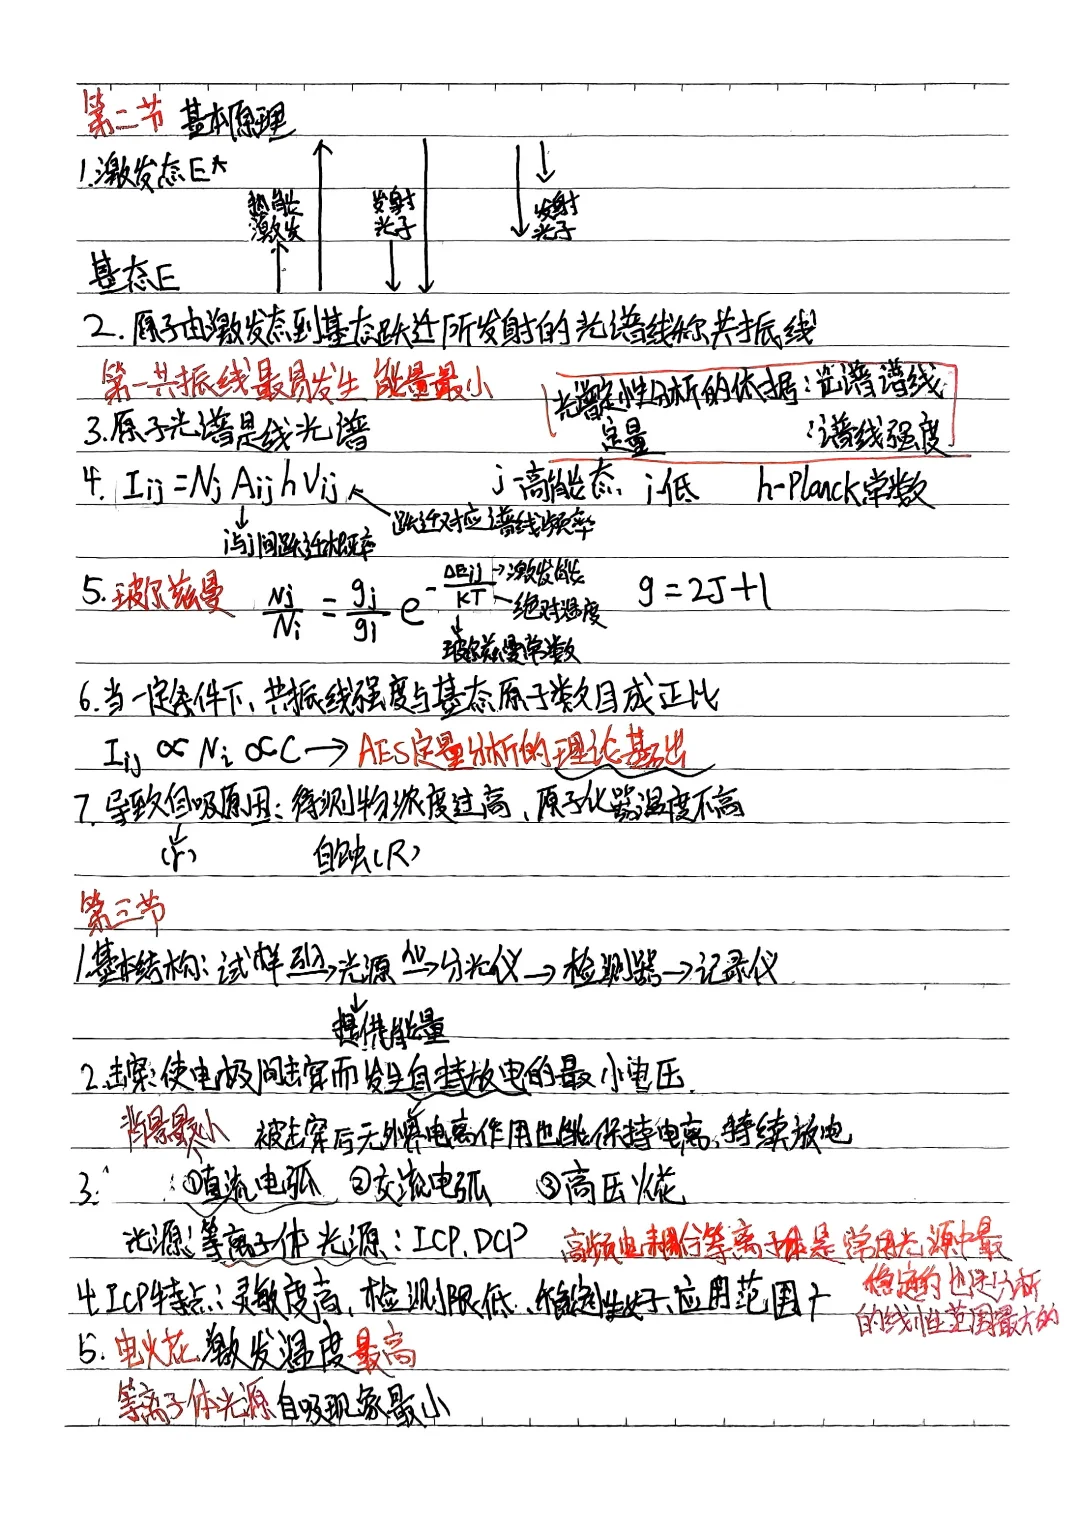 第二节 基本原理
1.激发态E*
热能激发 发射光子 发射光子
基态E
2.原子由激发态到基态跃迁所发射的光谱线称共振线
第一共振线最易发生 能量最小
光谱定性分析的依据:光谱谱线
3.原子光谱是线光谱
定量 :谱线强度
4. Iij=Nj Aij h Vij j-高能态 i低 h-Planck常数
i与j间跃迁概率 跃迁对应谱线频率
5.玻尔兹曼 Nj/Ni = gj/gi e^-ΔEij/KT g=2J+1
→激发能
绝对温度
玻尔兹曼常数
6.当一定条件下,共振线强度与基态原子数目成正比
Iij ∝ Ni ∝C→AES定量分析的理论基础
7.导致自吸原因:待测物浓度过高、原子化器温度不高
(r) 自蚀(R)
第三节
1.基本结构:试样 引入→光源 hν→分光仪→检测器→记录仪
提供能量
2.击穿:使电极间击穿而发生自持放电的最小电压.
背景最小 被击穿后无外界电离作用也能保持电离,持续放电
3. :①直流电弧 ②交流电弧 ③高压火花
光源:等离子体光源:ICP,DCP 高频电耦合等离子体是常用光源中最
稳定的也是分析
的线性范围最大的
4.ICP特点:灵敏度高、检测限低、稳定性好、应用范围广
5.电火花激发温度最高
等离子体光源自吸现象最小